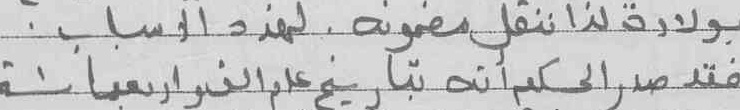 بولادة لذا ننقل مضمونه. لهذه الاسباب:
فقد صدر الحكم أنه بتاريخ عام الف و اربعمائة